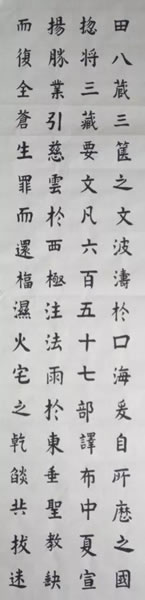 田八蔵三篋之文波濤於口海爰自所歷之國
惣将三藏要文凡六百五十七部譯布中夏宣
揚勝業引慈雲於西極注法雨於東垂聖教缺
而復全蒼生罪而還福濕火宅之乾燄共拔迷